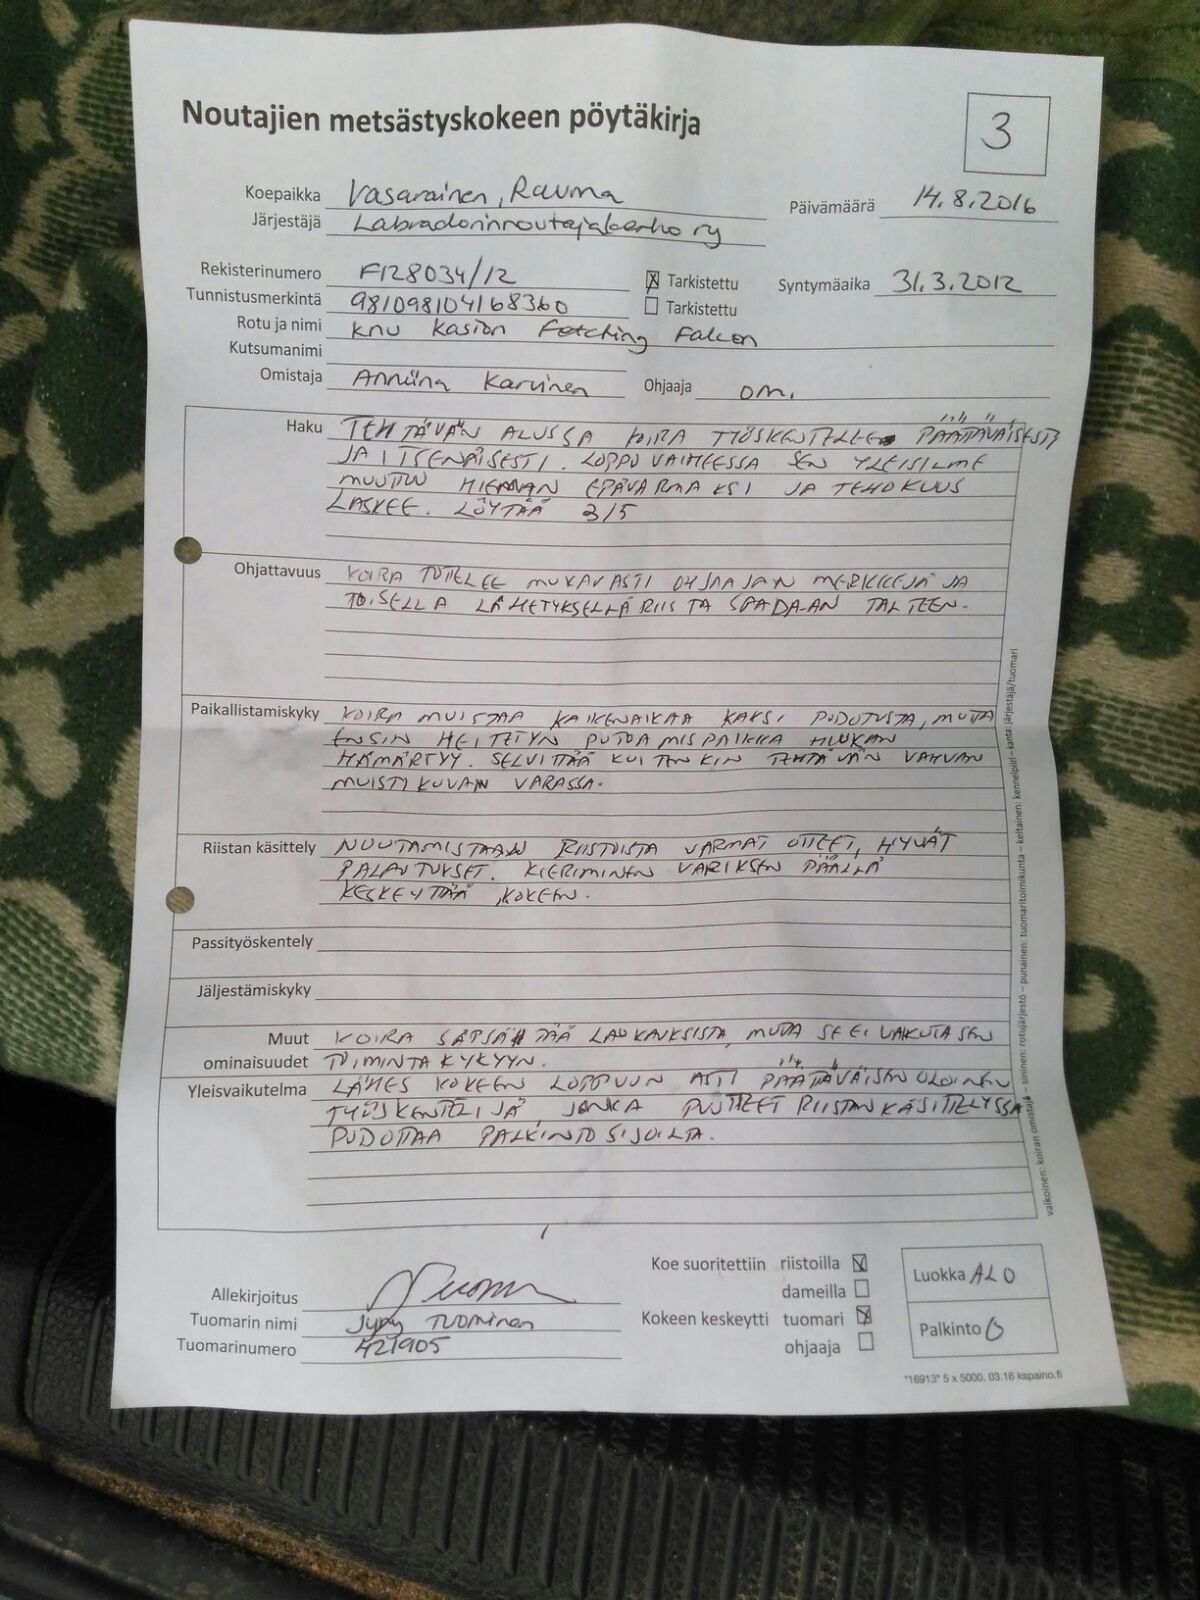 Noutajien metsästyskokeen pöytäkirja
3
Koepaikka Vasarainen, Rauma
Päivämäärä 14.8.2016
Järjestäjä Labradorinnoutajakerho ry
Rekisterinumero FI28034/12
Tarkistettu
Syntymäaika 31.3.2012
Tunnistusmerkintä 981098104168360
Tarkistettu
Rotu ja nimi knu Kasion Fetching Falcon
Kutsumanimi
Omistaja Anniina Karvinen Ohjaaja om.
Haku TEHTÄVÄN ALUSSA KOIRA TYÖSKENTELEE PÄÄTTÄVÄISESTI
JA ITSENÄISESTI. LOPPUVAIHEESSA SEN YLEISILME
MUUTTUU HIEMAN EPÄVARMAKSI JA TEHOKUUS
LASKEE. LÖYTÄÄ 3/5
Ohjattavuus KOIRA TOTELEE MUKAVASTI OHJAAJAN MERKKEJÄ JA
TOISELLA LÄHETYKSELLÄ RIISTA SAADAAN TALTEEN.
Paikallistamiskyky KOIRA MUISTAA KAIKENAIKAA KAKSI PUDOTUSTA, MUTTA
ENSIN HEITETYN PUTOAMISPAIKKA HIUKAN
HÄMÄRTYY. SELVITTÄÄ KUITENKIN TEHTÄVÄN VAHVAN
MUISTIKUVAN VARASSA.
Riistan käsittely NOUTAMISTAAN RIISTOISTA VARMAT OTTEET, HYVÄT
PALAUTUKSET. KIERIMINEN VARIKSEN PÄÄLLÄ
KESKEYTTÄÄ KOKEEN.
Passityöskentely
Jäljestämiskyky
Muut ominaisuudet KOIRA SÄPSÄHTÄÄ LAUKAUKSISTA, MUTTA SE EI VAIKUTA SEN
TOIMINTAKYKYYN.
Yleisvaikutelma LÄHES KOKEEN LOPPUUN ASTI PÄÄTTÄVÄISEN OLOINEN
TYÖSKENTELIJÄ, JONKA PUUTTEET RIISTANKÄSITTELYSSÄ
PUDOTTAA PALKINTOSIJOILTA.
valkoinen: koiran omistaja – sininen: rotujärjestö – punainen: tuomaritoimikunta – keltainen: kennelpiiri – kanta: järjestäjä/tuomari
Koe suoritettiin riistoilla
dameilla
Kokeen keskeytti tuomari
ohjaaja
Luokka ALO
Palkinto 0
Allekirjoitus
Tuomarin nimi Jyry Tuominen
Tuomarinumero 421905
*16913* 5 x 5000. 03.16 kspaino.fi